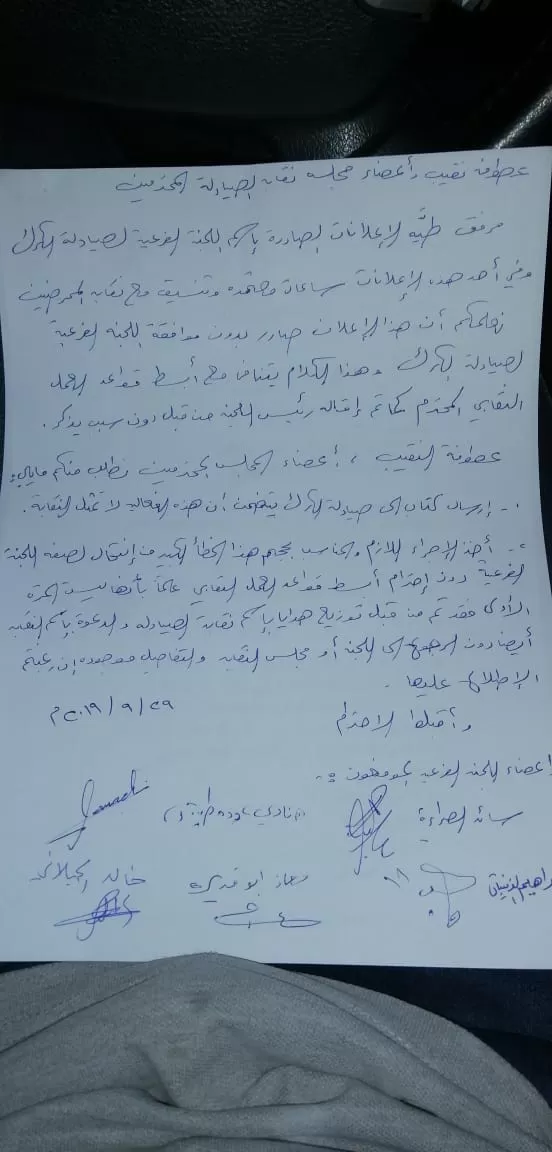 عطوفة نقيب وأعضاء مجلس نقابة الصيادلة المحترمين
مرفق طيَّه الإعلانات الصادرة بإسم اللجنة الفرعية لصيادلة الكرك
وفي أحد هذه الإعلانات ساعات معتمده وتنسيق مع نقابة الممرضين
نعلمكم أن هذا الإعلان صادر بدون موافقة اللجنه الفرعية
لصيادلة الكرك وهذا الكلام يتنافى مع أبسط قواعد العمل
النقابي المحترم كما تم إقالة رئيس اللجنة من قبل دون سبب يذكر.
عطوفة النقيب ، أعضاء المجلس المحترمين نطلب منكم مايلي:
١- إرسال كتاب الى صيادلة الكرك يتضمن أن هذه الفعاليه لا تمثل النقابة.
٢- أخذ الإجراء اللازم والمناسب بحجم هذا الخطأ الكبير من إنتحال لصفة اللجنة
الفرعية دون إحترام أبسط قواعد العمل النقابي علماً بأنها ليست المرة
الأولى فقد تم من قبل توزيع هدايا بإسم نقابة الصيادله والدعوة بإسم النقابه
أيضا دون الرجوع الى اللجنة أو مجلس النقابه والتفاصيل موجوده إن رغبتم
الإطلاع عليها.
وأقبلوا الاحترام
٢٩/٩/٢٠١٩م
أعضاء اللجنة الفرعيه الموقعون :-
سائد الصرايرة
معاذ ابو قديري
خالد الجيلاني